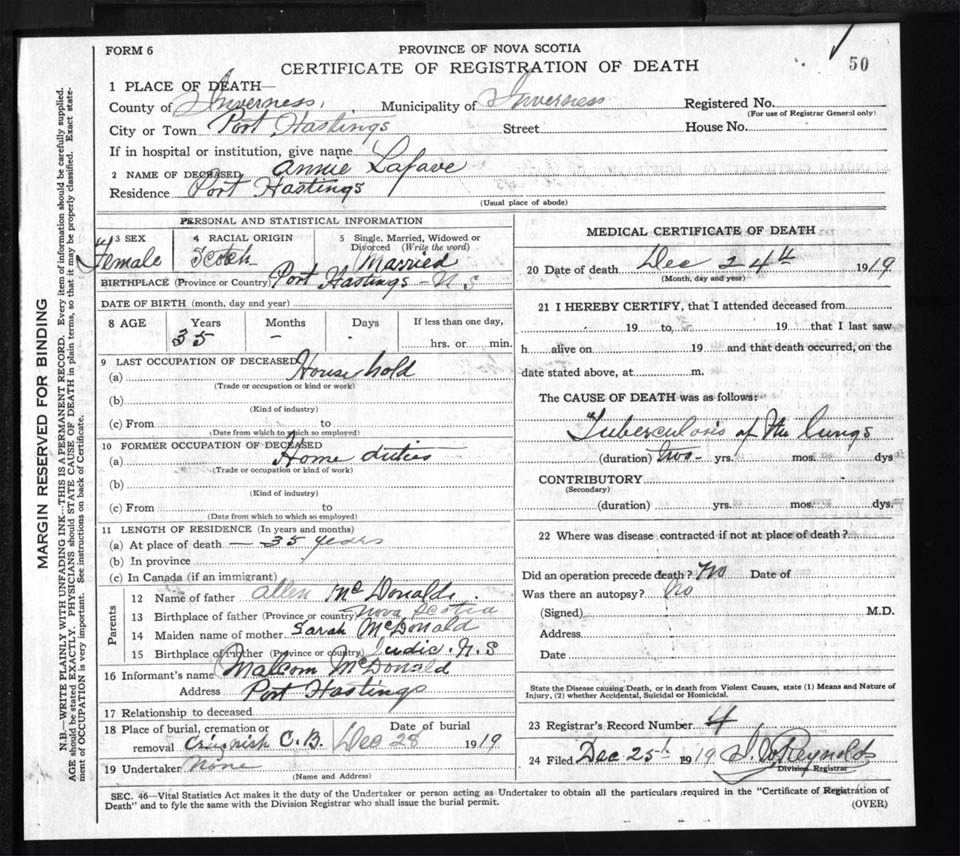 FORM 6
PROVINCE OF NOVA SCOTIA
CERTIFICATE OF REGISTRATION OF DEATH
50
1 PLACE OF DEATH—
County of Inverness, Municipality of Inverness Registered No.
(For use of Registrar General only)
City or Town Port Hastings Street House No.
If in hospital or institution, give name
2 NAME OF DECEASED Annie Lafave
Residence Port Hastings
(Usual place of abode)
PERSONAL AND STATISTICAL INFORMATION
3 SEX 4 RACIAL ORIGIN 5 Single, Married, Widowed or Divorced (Write the word)
Female Scotch Married
BIRTHPLACE (Province or Country) Port Hastings - N S
DATE OF BIRTH (month, day and year)
8 AGE Years Months Days If less than one day,
35 - hrs. or min.
9 LAST OCCUPATION OF DECEASED
(a) House hold
(Trade or occupation or kind of work)
(b)
(Kind of industry)
(c) From to
(Date from which to which so employed)
10 FORMER OCCUPATION OF DECEASED
(a) Home duties
(Trade or occupation or kind of work)
(b)
(Kind of industry)
(c) From to
(Date from which to which so employed)
11 LENGTH OF RESIDENCE (In years and months)
(a) At place of death — 35 years
(b) In province
(c) In Canada (if an immigrant)
Parents
12 Name of father Allen McDonald
13 Birthplace of father (Province or country) Nova Scotia
14 Maiden name of mother Sarah McDonald
15 Birthplace of mother (Province or country) N. S
16 Informant's name Malcom McDonald
Address Port Hastings
17 Relationship to deceased
18 Place of burial, cremation or removal Creignish C.B. Date of burial Dec 28 1919
19 Undertaker None
(Name and Address)
MEDICAL CERTIFICATE OF DEATH
20 Date of death Dec 24th 1919
(Month, day and year)
21 I HEREBY CERTIFY, that I attended deceased from
19 to 19 that I last saw
h alive on 19 and that death occurred, on the
date stated above, at m.
The CAUSE OF DEATH was as follows:
Tuberculosis of the lungs
(duration) two yrs. mos. dys
CONTRIBUTORY
(Secondary)
(duration) yrs. mos. dys.
22 Where was disease contracted if not at place of death?
Did an operation precede death? No Date of
Was there an autopsy? No
(Signed) M.D.
Address
Date
State the Disease causing Death, or in death from Violent Causes, state (1) Means and Nature of
Injury, (2) whether Accidental, Suicidal or Homicidal.
23 Registrar's Record Number 4
24 Filed Dec 25th 1919 Reynolds
Division Registrar
SEC. 46—Vital Statistics Act makes it the duty of the Undertaker or person acting as Undertaker to obtain all the particulars required in the "Certificate of Registration of
Death" and to fyle the same with the Division Registrar who shall issue the burial permit.
(OVER)
MARGIN RESERVED FOR BINDING
N.B.—WRITE PLAINLY WITH UNFADING INK—THIS IS A PERMANENT RECORD. Every item of information should be carefully supplied.
AGE should be stated EXACTLY. PHYSICIANS should STATE CAUSE OF DEATH in plain terms, so that it may be properly classified. Exact state-
ment of OCCUPATION is very important. See instructions on back of Certificate.